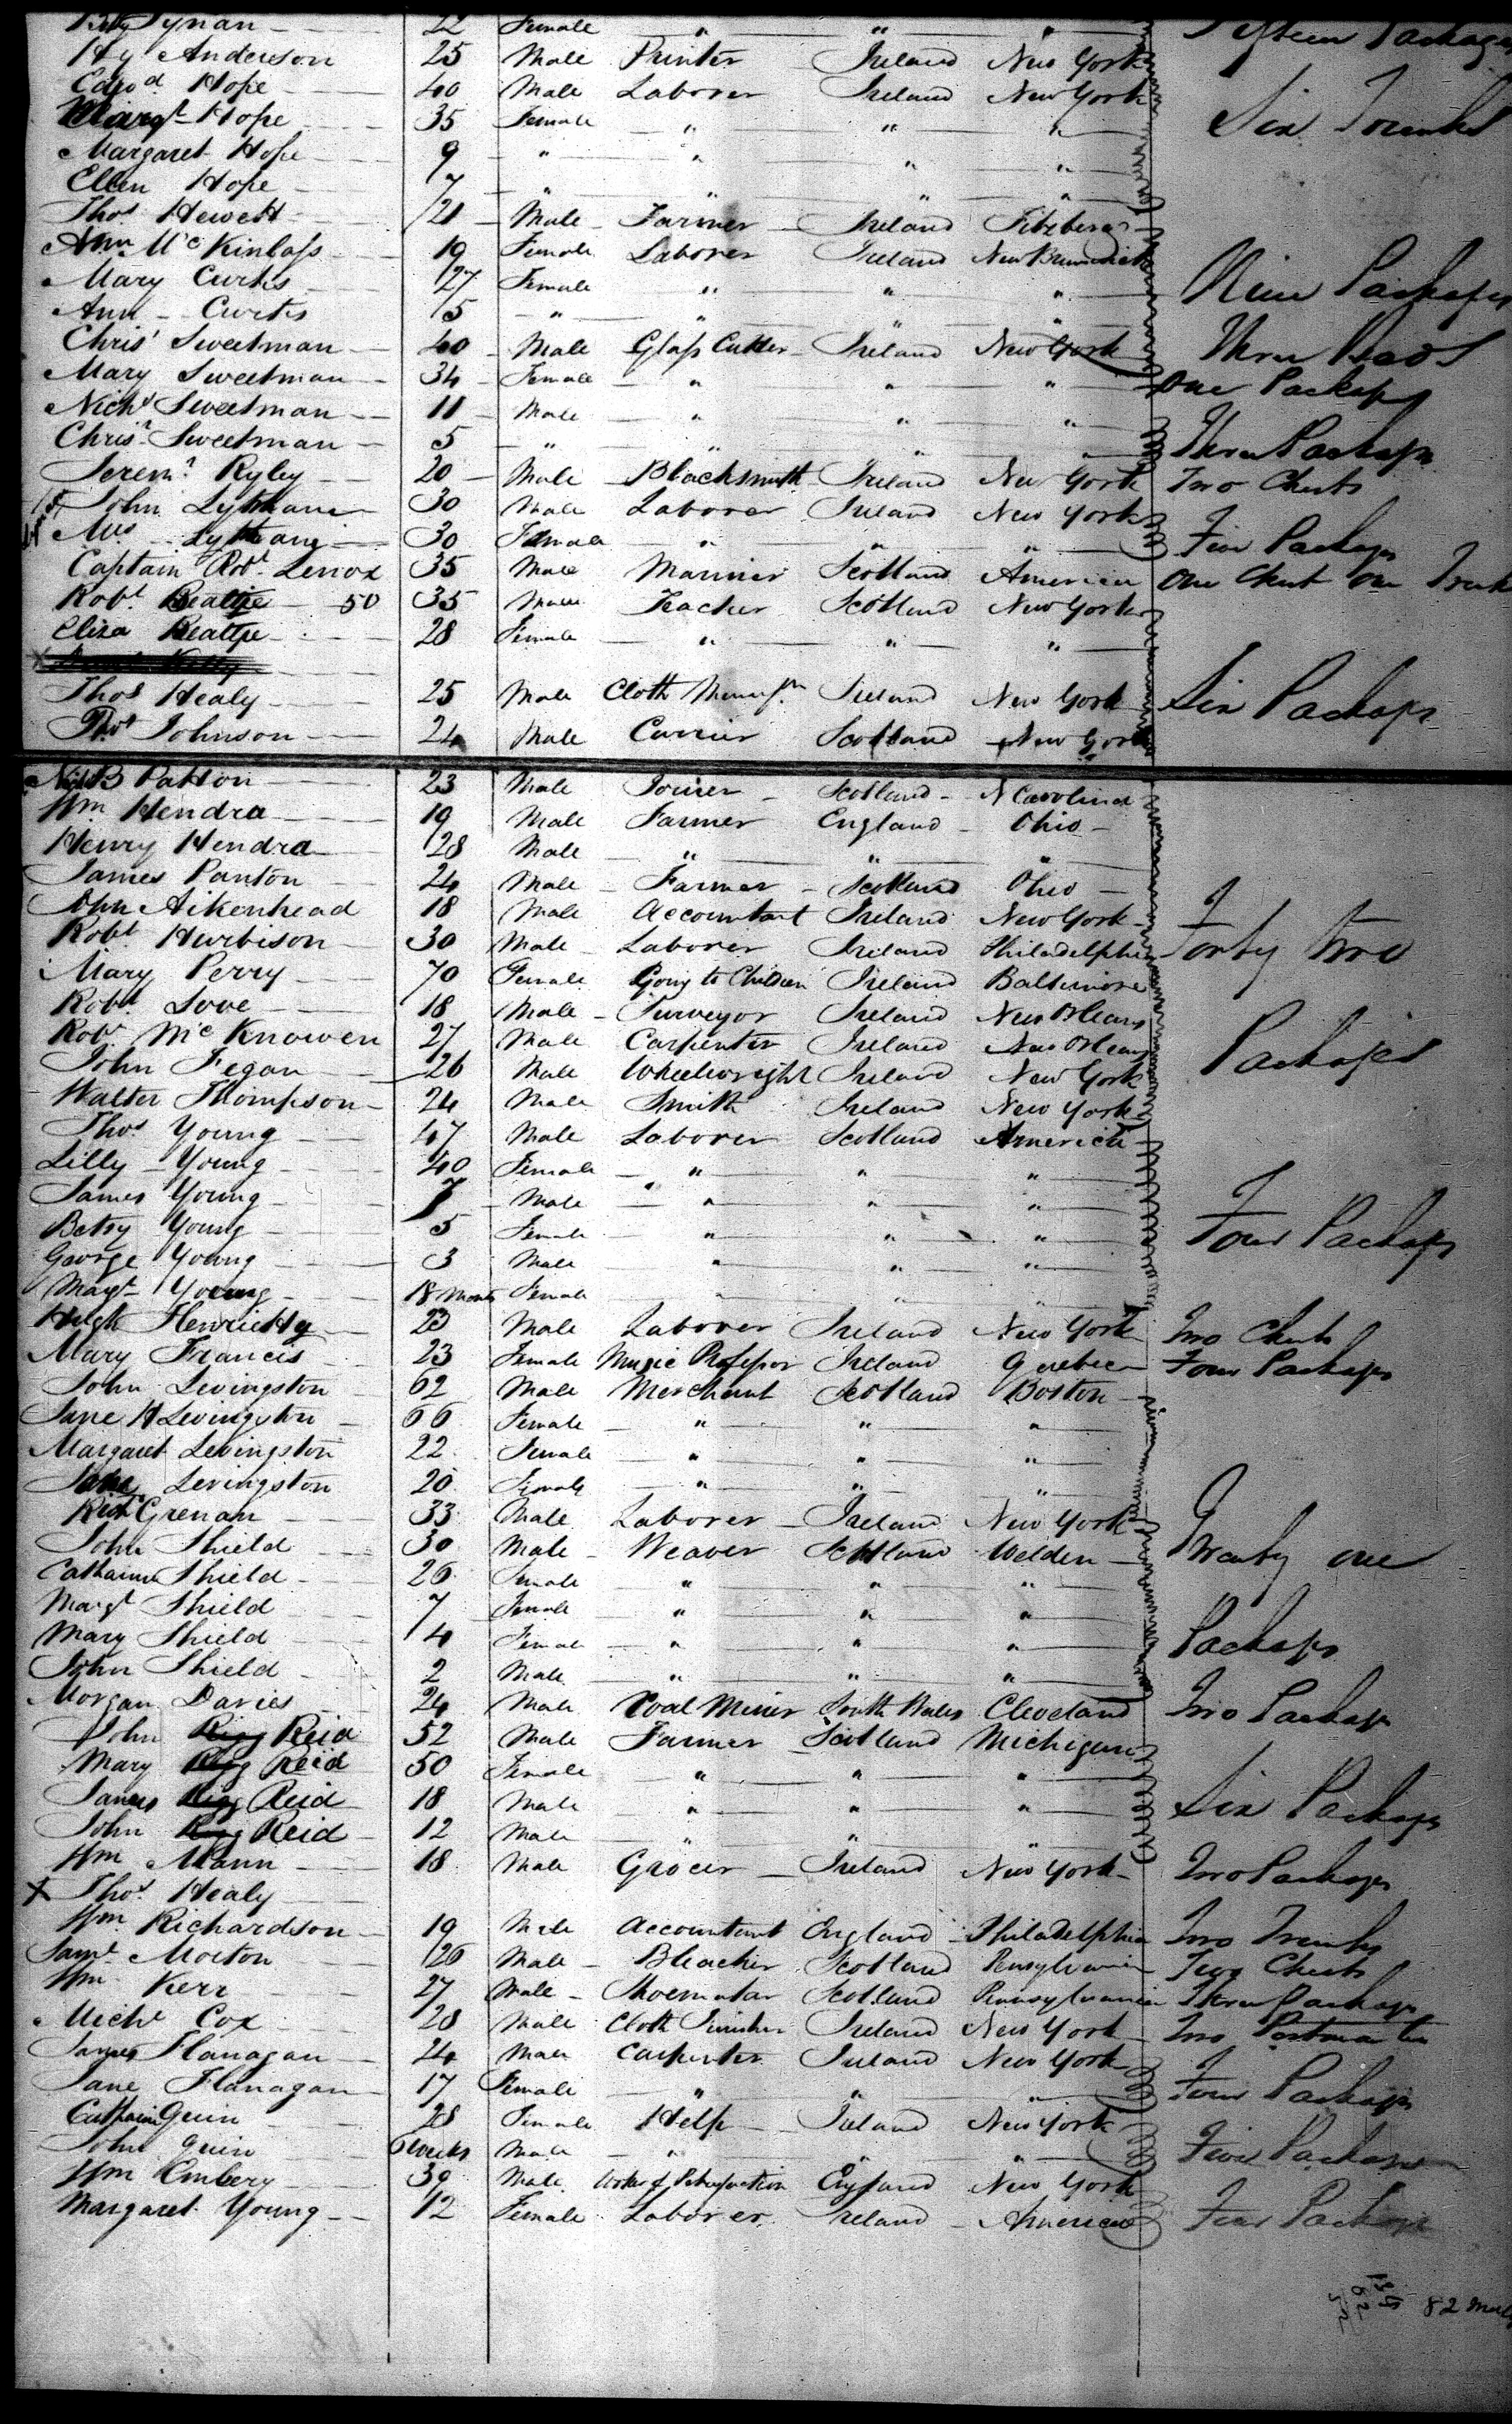 Tynan 22 Female " " " Fifteen Packages
Hy Anderson 25 Male Printer Ireland New York
Edwd Hope 40 Male Laborer Ireland New York
Margt Hope 35 Female " " " Six Trunks
Margaret Hope 9 " " " "
Ellen Hope 7 " " " "
Thos Hewett 21 Male Farmer Ireland
Ann McKinlass 19 Female Laborer Ireland New Brunswick
Mary Curtis 27 Female " " " Nine Packages
Ann Curtis 5 " " " "
Chrisr Sweetman 40 Male Glass Cutter Ireland New York Three
Mary Sweetman 34 Female " " " One Package
Nichs Sweetman 11 Male " " "
Chrisr Sweetman 5 " " " " Three Packages
Jeremh Ryley 20 Male Blacksmith Ireland New York Two Chests
John 30 Male Laborer Ireland New York
Mrs 30 Female " " " Five Packages
Captain Robt Lenox 35 Male Mariner Scotland America One Chest One Trunk
Robt Beattie 50 35 Male Teacher Scotland New York
Eliza Beattie 28 Female " " "
Thos Healy 25 Male Cloth Manufr Ireland New York Six Packages
Johnson 24 Male Currier Scotland New York
Patton 23 Male Joiner Scotland N Carolina
Wm Hendra 19 Male Farmer England Ohio
Henry Hendra 28 Male " " "
James Panton 24 Male Farmer Scotland Ohio
John Aikenhead 18 Male Accountant Ireland New York
Robt Hurbison 30 Male Laborer Ireland Philadelphia Forty two
Mary Perry 70 Female Going to Children Ireland Baltimore
Robt Love 18 Male Surveyor Ireland New Orleans
Robt McKnowen 27 Male Carpenter Ireland New Orleans Packages
John Fegan 26 Male Wheelwright Ireland New York
Walter Thompson 24 Male Smith Ireland New York
Thos Young 47 Male Laborer Scotland America
Lilly Young 40 Female " " "
James Young 7 Male " " "
Betsy Young 5 Female " " " Four Packages
George Young 3 Male " " "
Margt Young 18 Months Female " " "
Hugh Henrietty 23 Male Laborer Ireland New York Two Chests
Mary Francis 23 Female Music Professor Ireland Quebec Four Packages
John Levingston 62 Male Merchant Scotland Boston
Jane H Levingston 66 Female " " "
Margaret Levingston 22 Female " " "
Jane Levingston 20 Female " " "
Richd Grenan 33 Male Laborer Ireland New York
John Shield 30 Male Weaver Scotland Welden Twenty one
Catharine Shield 26 Female " " "
Margt Shield 7 Female " " "
Mary Shield 4 Female " " " Packages
John Shield 2 Male " " "
Morgan Davies 24 Male Coal Miner South Wales Cleveland Two Packages
John Reid 52 Male Farmer Scotland Michigan
Mary Reid 50 Female " " "
James Reid 18 Male " " " Six Packages
John Reid 12 Male " " "
Wm Mann 18 Male Grocer Ireland New York Two Packages
X Thos Healy
Wm Richardson 19 Male Accountant England Philadelphia Two Trunks
Saml Morton 26 Male Bleacher Scotland Pensylvania Two Chests
Wm Kerr 27 Male Shoemaker Scotland Pennsylvania Three Packages
Michl Cox 28 Male Cloth Finisher Ireland New York Two
James Flanagan 24 Male Carpenter Ireland New York
Jane Flanagan 17 Female " " " Four Packages
Catharine Quin 28 Female Help Ireland New York
John Quin 6 Weeks Male " " " Five Packages
Wm Embery 39 Male England New York
Margaret Young 12 Female Laborer Ireland America Four Packages
82 Male